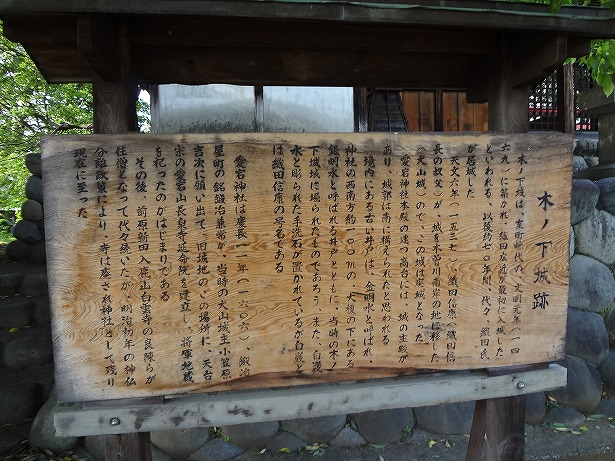 木ノ下城跡
木ノ下城は、室町時代の文明元年（一四
六九）に築かれ、織田広近が最初に入城した
といわれる。以後約七〇年間、代々、織田氏
が居城した。
天文六年（一五三七）、織田信康（織田信
長の叔父）が、城を木曽川南岸の地に移した
（犬山城）ので、この城は廃城となった。
愛宕神社本殿の建つ高台には、城の主殿が
あり、城郭は南に構えられたと思われる。
境内にある古い井戸は、金明水と呼ばれ、
神社の西南方約一〇〇mの、大榎の下にある
銀明水と呼ばれる井戸とともに、当時の木ノ
下城域に掘られたものであろう。また、白巌
水と彫られた手洗石が置かれているが白巌と
は織田信康の号名である。
愛宕神社は慶長一一年（一六〇六）、鍛冶
屋町の銘鍛冶兼常が、当時の犬山城主小笠原
吉次に願い出て、旧城地のこの場所に、天台
宗の愛宕山長泉寺延命院を建立し、将軍地蔵
を祀ったのがはじまりである。
その後、前原新田入鹿山白雲寺の良陳らが
住僧となって代々続いたが、明治初年の神仏
分離政策により、寺は廃され神社として残り
現在に至った。